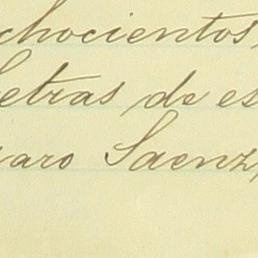 chocientos,
Letras de es
aro Saenz,